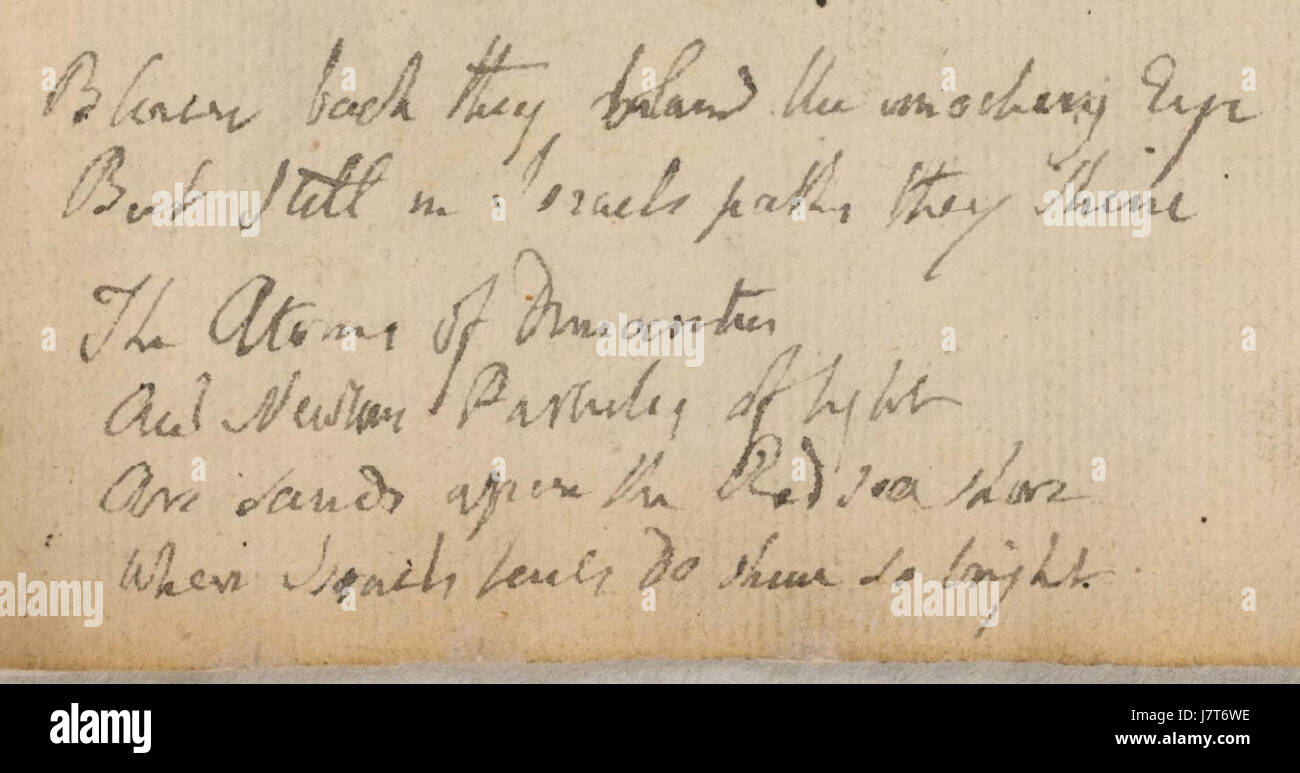 Blown back they blind the mocking Eye
But still in Israels paths they shine
The Atoms of Democritus
And Newtons Particles of light
Are sands upon the Red sea shore
Where Israels tents do shine so bright.
alamy
Image ID: J7T6WE
www.alamy.com